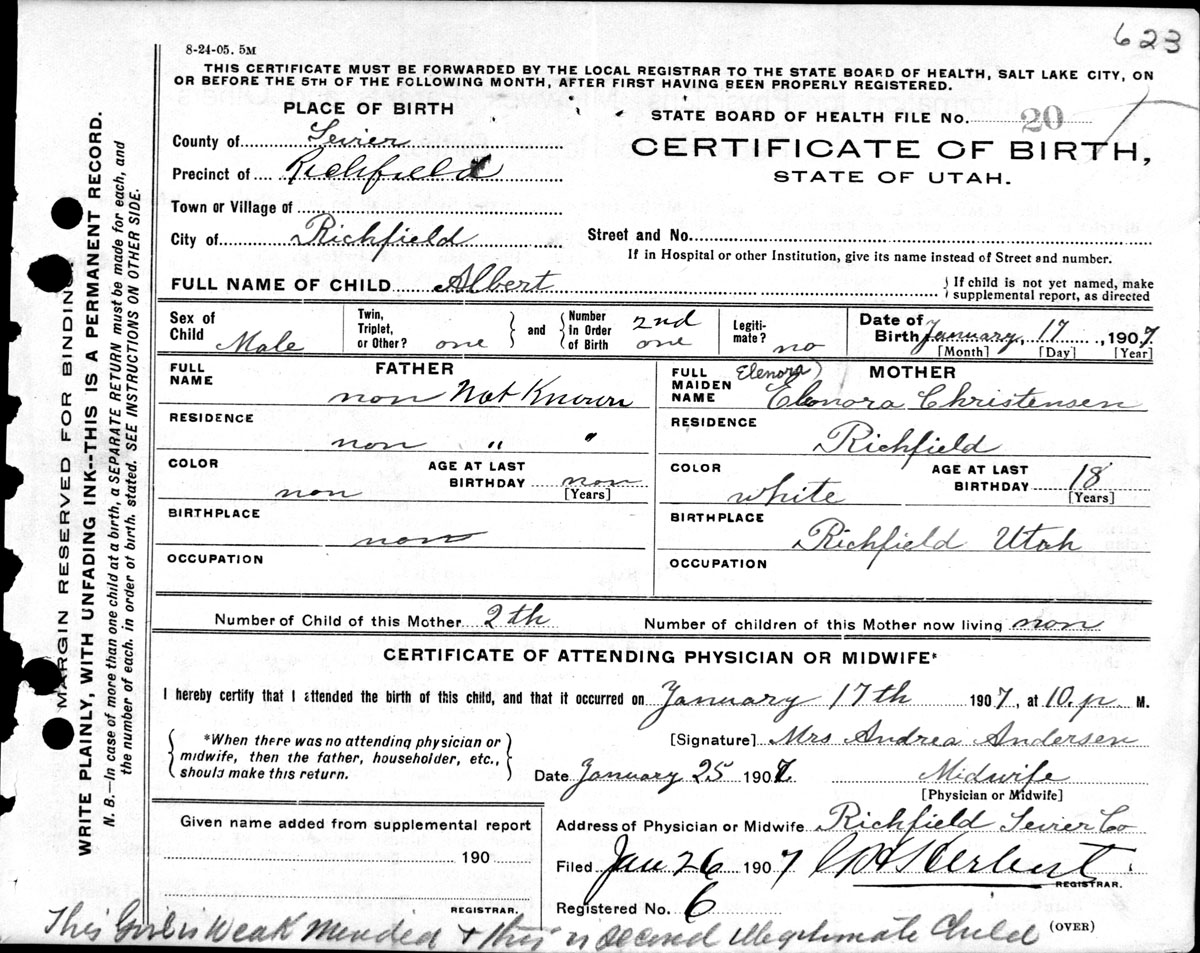 623
8-24-05. 5M
THIS CERTIFICATE MUST BE FORWARDED BY THE LOCAL REGISTRAR TO THE STATE BOARD OF HEALTH, SALT LAKE CITY, ON
OR BEFORE THE 5TH OF THE FOLLOWING MONTH, AFTER FIRST HAVING BEEN PROPERLY REGISTERED.
PLACE OF BIRTH
STATE BOARD OF HEALTH FILE No. 20
County of Sevier
CERTIFICATE OF BIRTH,
Precinct of Richfield
STATE OF UTAH.
Town or Village of
City of Richfield
Street and No.
If in Hospital or other Institution, give its name instead of Street and number.
FULL NAME OF CHILD Albert
{ If child is not yet named, make
supplemental report, as directed
Sex of Child Male
Twin, Triplet, or Other? one
and
Number in Order of Birth 2nd one
Legitimate? no
Date of Birth January, 17, 1907
[Month] [Day] [Year]
FATHER
FULL NAME non Not Known
RESIDENCE non " "
COLOR non
AGE AT LAST BIRTHDAY non
[Years]
BIRTHPLACE non
OCCUPATION
MOTHER
FULL MAIDEN NAME (Elenora) Elonora Christensen
RESIDENCE Richfield
COLOR white
AGE AT LAST BIRTHDAY 18
[Years]
BIRTHPLACE Richfield Utah
OCCUPATION
Number of Child of this Mother 2th
Number of children of this Mother now living non
CERTIFICATE OF ATTENDING PHYSICIAN OR MIDWIFE*
I hereby certify that I attended the birth of this child, and that it occurred on January 17th 1907, at 10.p. M.
{ *When there was no attending physician or
midwife, then the father, householder, etc.,
should make this return. }
[Signature] Mrs Andrea Andersen
Date January 25 1907.
Midwife
[Physician or Midwife]
Given name added from supplemental report
190
REGISTRAR.
Address of Physician or Midwife Richfield Sevier Co
Filed Jan 26 1907
Herbert
REGISTRAR.
Registered No. 6
(OVER)
This Girl is Weak Minded & this is second illegitimate Child
MARGIN RESERVED FOR BINDING.
WRITE PLAINLY, WITH UNFADING INK--THIS IS A PERMANENT RECORD.
N. B.—In case of more than one child at a birth, a SEPARATE RETURN must be made for each, and
the number of each, in order of birth, stated. SEE INSTRUCTIONS ON OTHER SIDE.